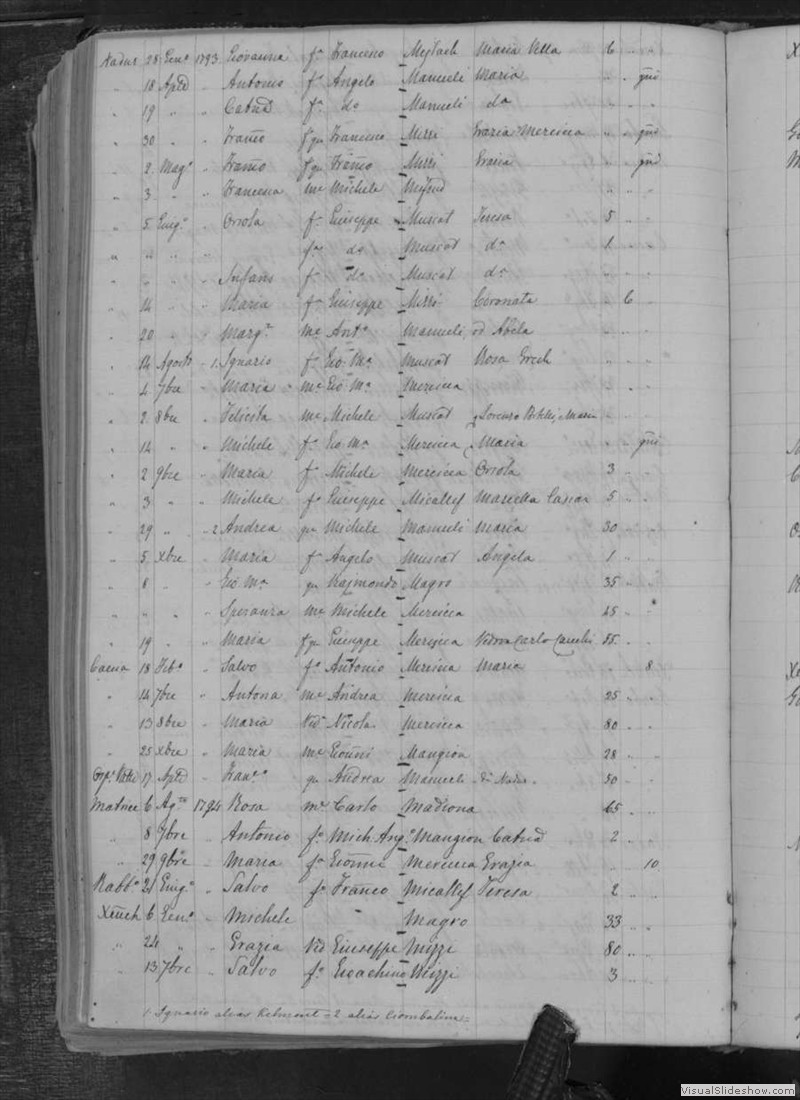 Nadur 28 Gen° 1793 Giovanna fa Franceso Mejlach Maria Vella 6 " "
" 18 Aple " Antonio fo Angelo Manueli Maria " " gni
" 19 " " fa do Manueli da " " "
" 30 " " fo qu Francesco Mizzi Grazia Mercieca " " gni
" 2 Magº " fo qu Mizzi " " gni
" 3 " " Francesca me Michele " " "
" 5 Giugº " Orsola fa Giuseppe Muscat Teresa 5 " "
" " " " fa do Muscat da 1 " "
" " " " Infans fo do Muscat da " " "
" 14 " " Maria fa Giuseppe Mizzi Coronata " 6 "
" 20 " " Margta me Anto Manueli od Abela " " "
" 14 Agosto " 1. Ignazio fo Gio Ma Muscat Rosa Grech " " "
" 4 7bre " Maria me Gio Ma Mercieca " " "
" 2 8bre " Felicita me Michele Muscat Lorenzo Maria " " "
" 14 " " Michele fo Gio Ma Mercieca Maria " " gni
" 2 9bre " Maria fa Michele Mercieca Orsola 3 " "
" 3 " " Michele fo Giuseppe Micallef Marietta Cassar 5 " "
" 29 " " 2 Andrea qu Michele Manueli Maria 30 " "
" 5 Xbre " Maria fa Angelo Muscat Angela 1 " "
" 8 " Gio Ma qu Raimondo Magro 35 " "
" " " " Speranza me Michele Mercieca 45 " "
" 19 " " Maria fa qu Giuseppe Mercieca Vedova Carlo 55 " "
Caccia 18 Febo " Salvo fo Antonio Mercieca Maria " " 8
" 14 7bre " Antona me Andrea Mercieca 25 " "
" 13 8bre " Maria Vida Nicola Mercieca 80 " "
" 25 Xbre " Maria me Gioanni Mangion 28 " "
17 Aple " Franco qu Andrea Manueli di Nadur 50 " "
Matrice 6 Agto 1794 Rosa me Carlo Madiona 65 " "
" 8 7bre " Antonio fo Mich. Ango Mangion 2 " "
" 29 9bre " Maria fa Gioanni Mercieca Grazia " " 10
Rabbto 21 Giugº " Salvo fo Franco Micallef Teresa 2 " "
Xeuch 6 Geno " Michele " Magro 33 " "
" 24 " " Grazia Vid Giuseppe Mizzi 80 " "
" 13 7bre " Salvo fo Gioachino Mizzi 3 " "
1 Ignazio alias Kelment = 2 alias Ciombalina =
VisualSlideshow.com